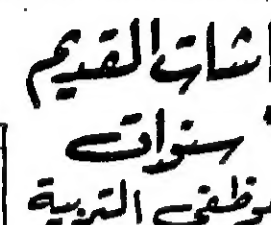 اشات القديم
سنوات
موظفي التربية